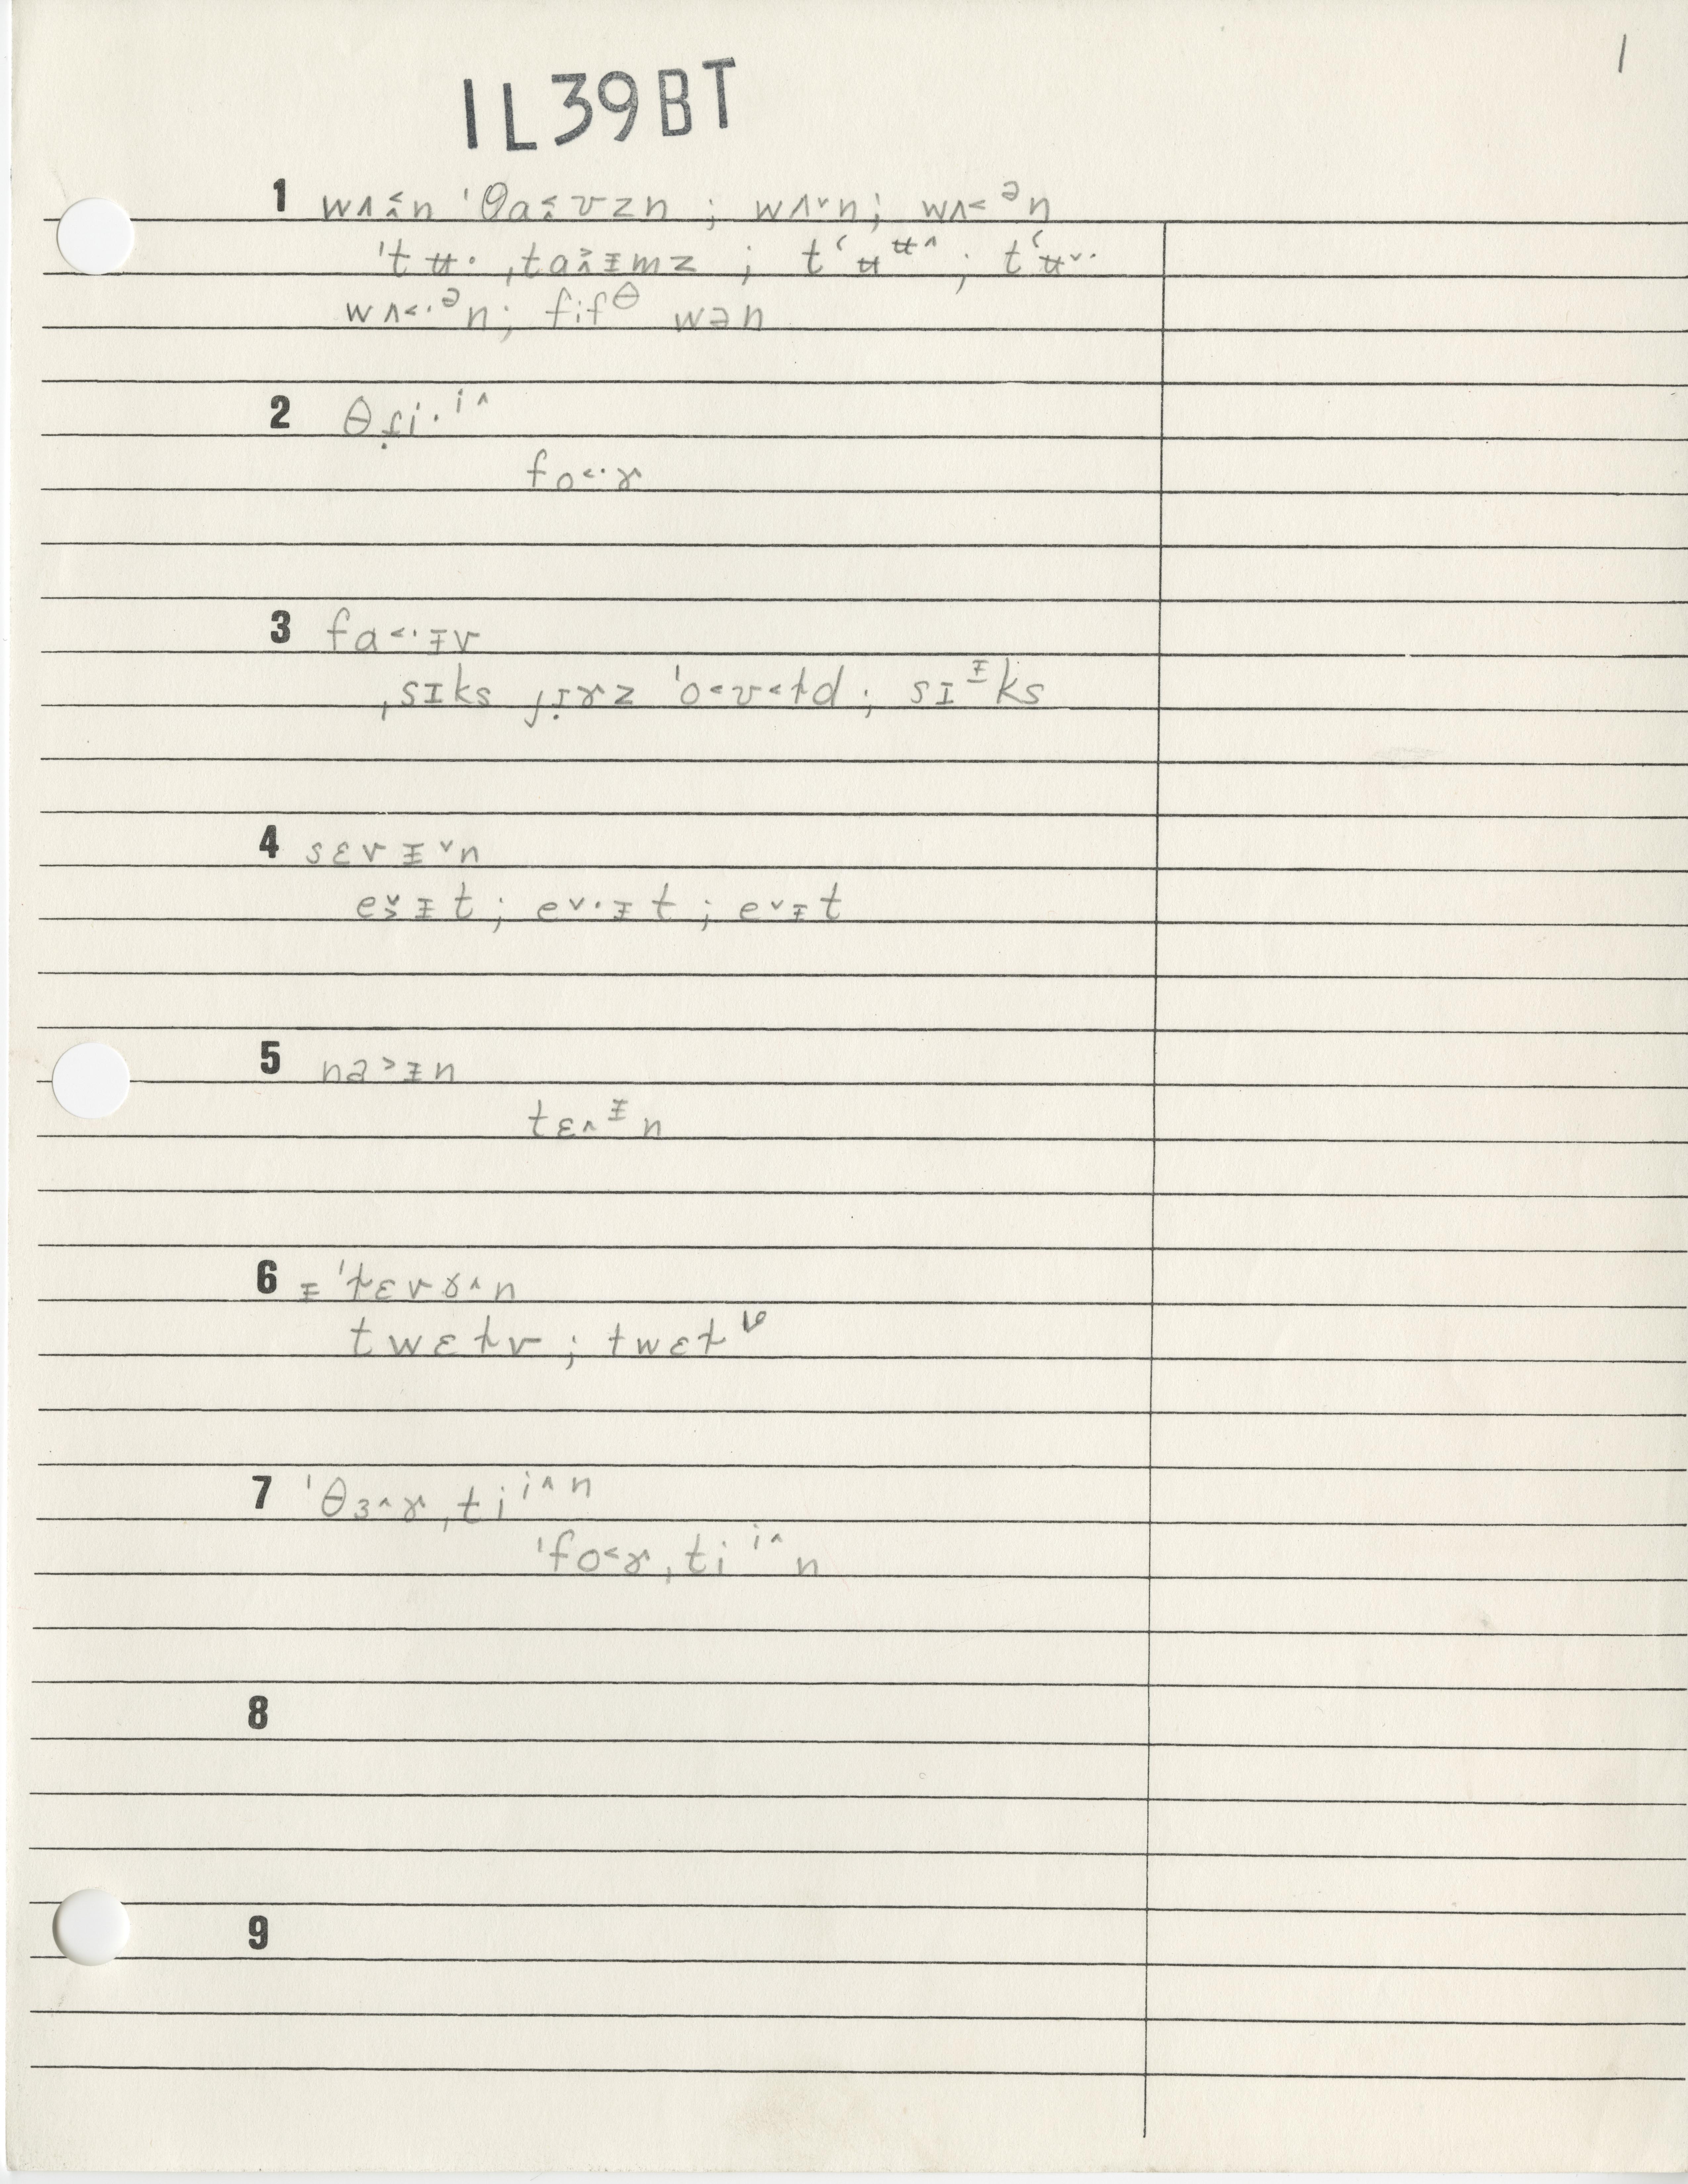 1
1L39BT
1 wʌ˂̭n ˈθa˂̬ʊzn ; wʌ˅n; wʌ˂ᵊn
ˈtʉ· ˌta˃̭ɪ̵mz ; tʻʉᶶ˄ ; tʻʉ˅·
wʌ˂·ᵊn; fifᶿ wən
2 θɹ̣i·ⁱ˄
fo˂·ɚ
3 fa˂·ɪ̵v
ˌsɪks ȷɪ̣ɚz ˈo˂ʊ˂ɫd ; sɪᶧks
4 sɛvɪ̵˅n
e˅̬ɪ̵t ; e˅·ɪ̵t ; e˅ɪ̵t
5 na˃ɪ̵n
tɛ˄ᶧn
6 ɪ̵ˈɫɛvɚ˄n
twɛɫv ; twɛɫᵛ
7 ˈθɜ˄ɚˌtiⁱ˄n
ˈfo˂ɚˌtiⁱ˄n
8
9